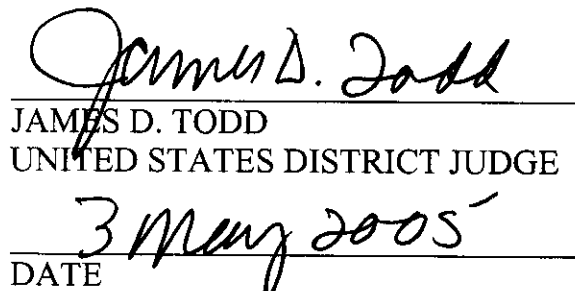 James D. Todd
JAMES D. TODD
UNITED STATES DISTRICT JUDGE
3 May 2005
DATE